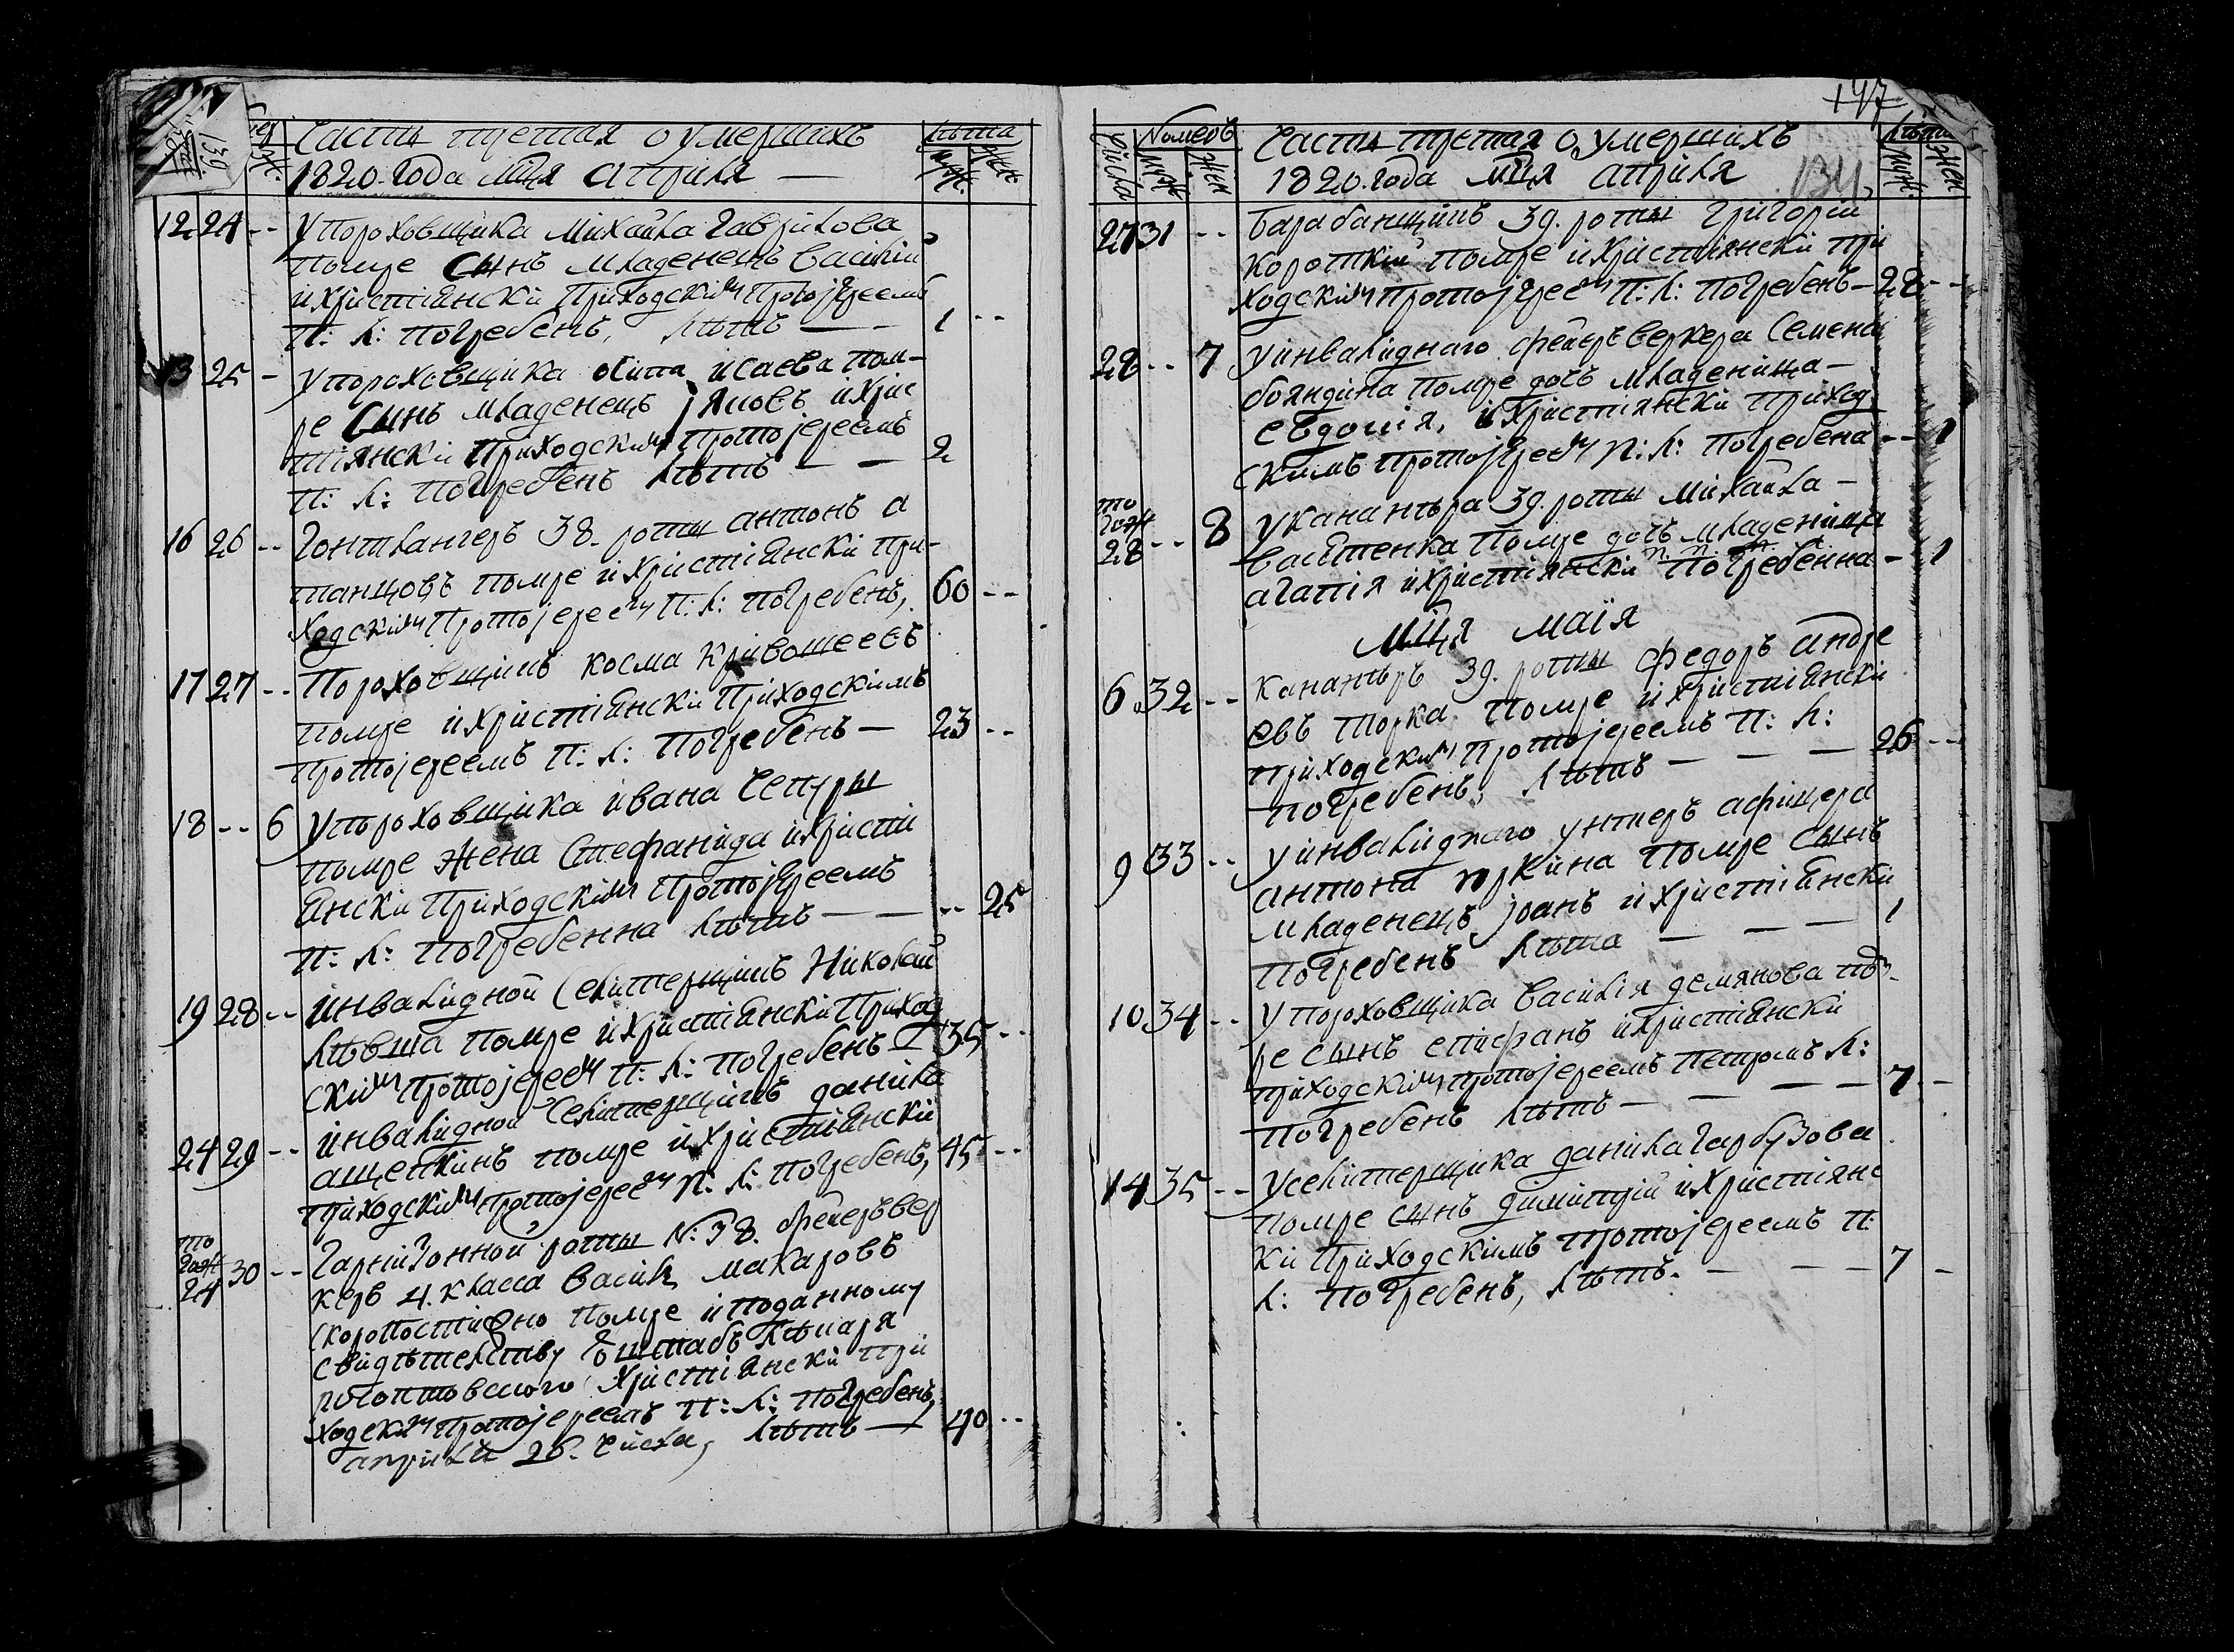 139
Часть третая о умершихъ
1820. года мця априля
лѣта
муж.
жен.
12 24 -- У пороховщика михайла гаврилова
помре сынъ младенецъ василій
и христіянски приходскимъ протоjереемъ
П: Л: погребенъ, лѣтъ — 1 --
13 25 - У пороховщика осипа исаева пом-
ре сынъ младенецъ jяковъ и хрис
тіянски приходскимъ протоjереемъ
П: Л: погребенъ лѣтъ — — 2
16 26 -- Гонтлангеръ 38. роты антонъ а
танцовъ помре и христіянски при-
ходскимъ протоjереемъ П: Л: погребенъ, 60 --
17 27 -- Пороховщикъ косма кривошеевъ
помре и христіянски приходскимъ
протоjереемъ П: Л: погребенъ — 23 --
18 -- 6 У пороховщика ивана чепуры
помре жена Стефанида и христи
янски приходскимъ протоjереемъ
П: Л: погребенна лѣтъ — — -- 25
19 28 -- инвалидной селитерщикъ Николай
лѣвша помре и христіянски приход
скимъ протоjереемъ П: Л: погребенъ 35 --
24 29 -- инвалидной селитерщикъ данила
ащепкинъ помре и христіянски
приходскимъ протоjереемъ П: Л: погребенъ, 45 --
то
гож
24 30 -- Гарнизонной роты N: 38. фейеръвер
керъ 4. класса васил макаровъ
скоропостижно помре и поданному
свидѣтелству штабъ лѣкаря
христіянски при
ходским протоjереемъ П: Л: погребенъ,
априля 26. числа, лѣтъ — 40 --
147
134
Числа
Номеръ
муж
жен
Часть третая о умершихъ
1820. года мця априля
лѣта
муж.
жен
27 31 -- Барабанщикъ 39. роты григорій
короткій помре и христіянски при
ходскимъ протоjереемъ П: Л: погребенъ — 28 --
28 -- 7 У инвалиднаго фейеръверкера Семена
бояндина помре дочь младеница —
евдокія, и христіянски приход
скимъ протоjереемъ П: Л: погребена -- 1
то
гож
28 -- 8 У канантра 39. роты михайла —
васітенка помре дочь младеница
агапія и христіянски П. П. Л. погребенна - 1
мця маія
6 32 -- Канантръ 39. роты федоръ андре
евъ торка помре и христіянски
приходскимъ протоjереемъ П: Л:
погребенъ, лѣтъ — — — 26 --
9 33 -- У инвалиднаго унтеръ афицера
антона юркина помре сынъ
младенецъ jоанъ и христіянски
погребенъ лѣта — — — 1
10 34 -- У пороховщика василія демянова пом-
ре сынъ епифанъ и христіянски
приходскимъ протоjереемъ петромъ Л:
погребенъ лѣтъ — — — — 7 -
14 35 -- У селитерщика данила гарбузова
помре сынъ димитрій и христіянс
ки приходскимъ протоjереемъ П:
Л: погребенъ, лѣтъ. — — — 7 -